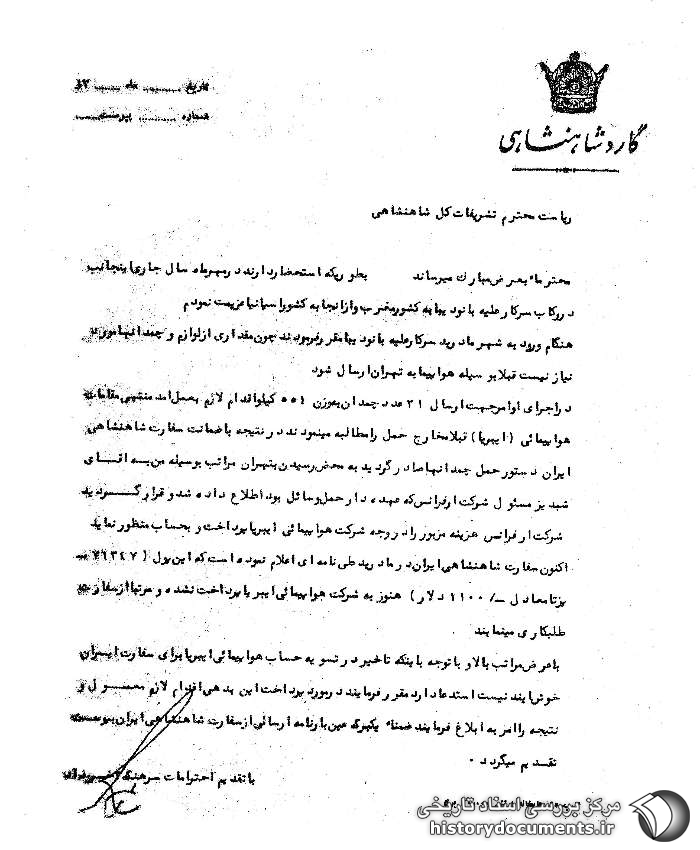 تاریخ ماه ۴۲
شماره پیوست
گارد شاهنشاهی
ریاست محترم تشریفات کل شاهنشاهی
محترما" بعرض مبارک میرساند بطوریکه استحضار دارند در مهرماه سال جاری اینجانب
در رکاب سرکار علیه بانو دیبا به کشور مغرب و از آنجا به کشور اسپانیا عزیمت نمودم
هنگام ورود به شهر مادرید سرکار علیه بانو دیبا مقرر فرمودند چون مقداری از لوازم و چمدانها مورد
نیاز نیست قبلا بوسیله هواپیما به تهران ارسال شود
در اجرای اوامر جهت ارسال ۲۱ عدد چمدان بوزن ۵۵۱ کیلو اقدام لازم بعمل آمد منتهی مقامات
هواپیمائی (ایبریا) قبلا مخارج حمل را مطالبه مینمودند در نتیجه با ضمانت سفارت شاهنشاهی
ایران دستور حمل چمدانها صادر گردید به محض رسیدن بتهران مراتب بوسیله من به آقای
مسئول شرکت ارفرانس که عهده دار حمل وسائل بود اطلاع داده شد و قرار گردید
شرکت ارفرانس هزینه مزبور را در وجه شرکت هواپیمائی ایبریا پرداخت و بحساب منظور نماید
اکنون سفارت شاهنشاهی ایران در مادرید طی نامه ای اعلام نموده است که این پول (۷۱۳۴۷
پزتا معادل -/۱۱۰۰ دلار) هنوز به شرکت هواپیمائی ایبریا پرداخت نشده و مرتبا از سفارت
طلبکاری مینمایند
با عرض مراتب بالا و با توجه باینکه تاخیر در تسویه حساب هواپیمائی ایبریا برای سفارت ایران
خوش آیند نیست استدعا دارد مقرر فرمایند در مورد پرداخت این بدهی اقدام لازم معمول و
نتیجه را امر به ابلاغ فرمایند ضمنا" یکبرگ عین بارنامه ارسالی از سفارت شاهنشاهی ایران بپیوست
تقدیم میگردد .
با تقدیم احترامات سرهنگ
مرکز بررسی اسناد تاریخی
historydocuments.ir